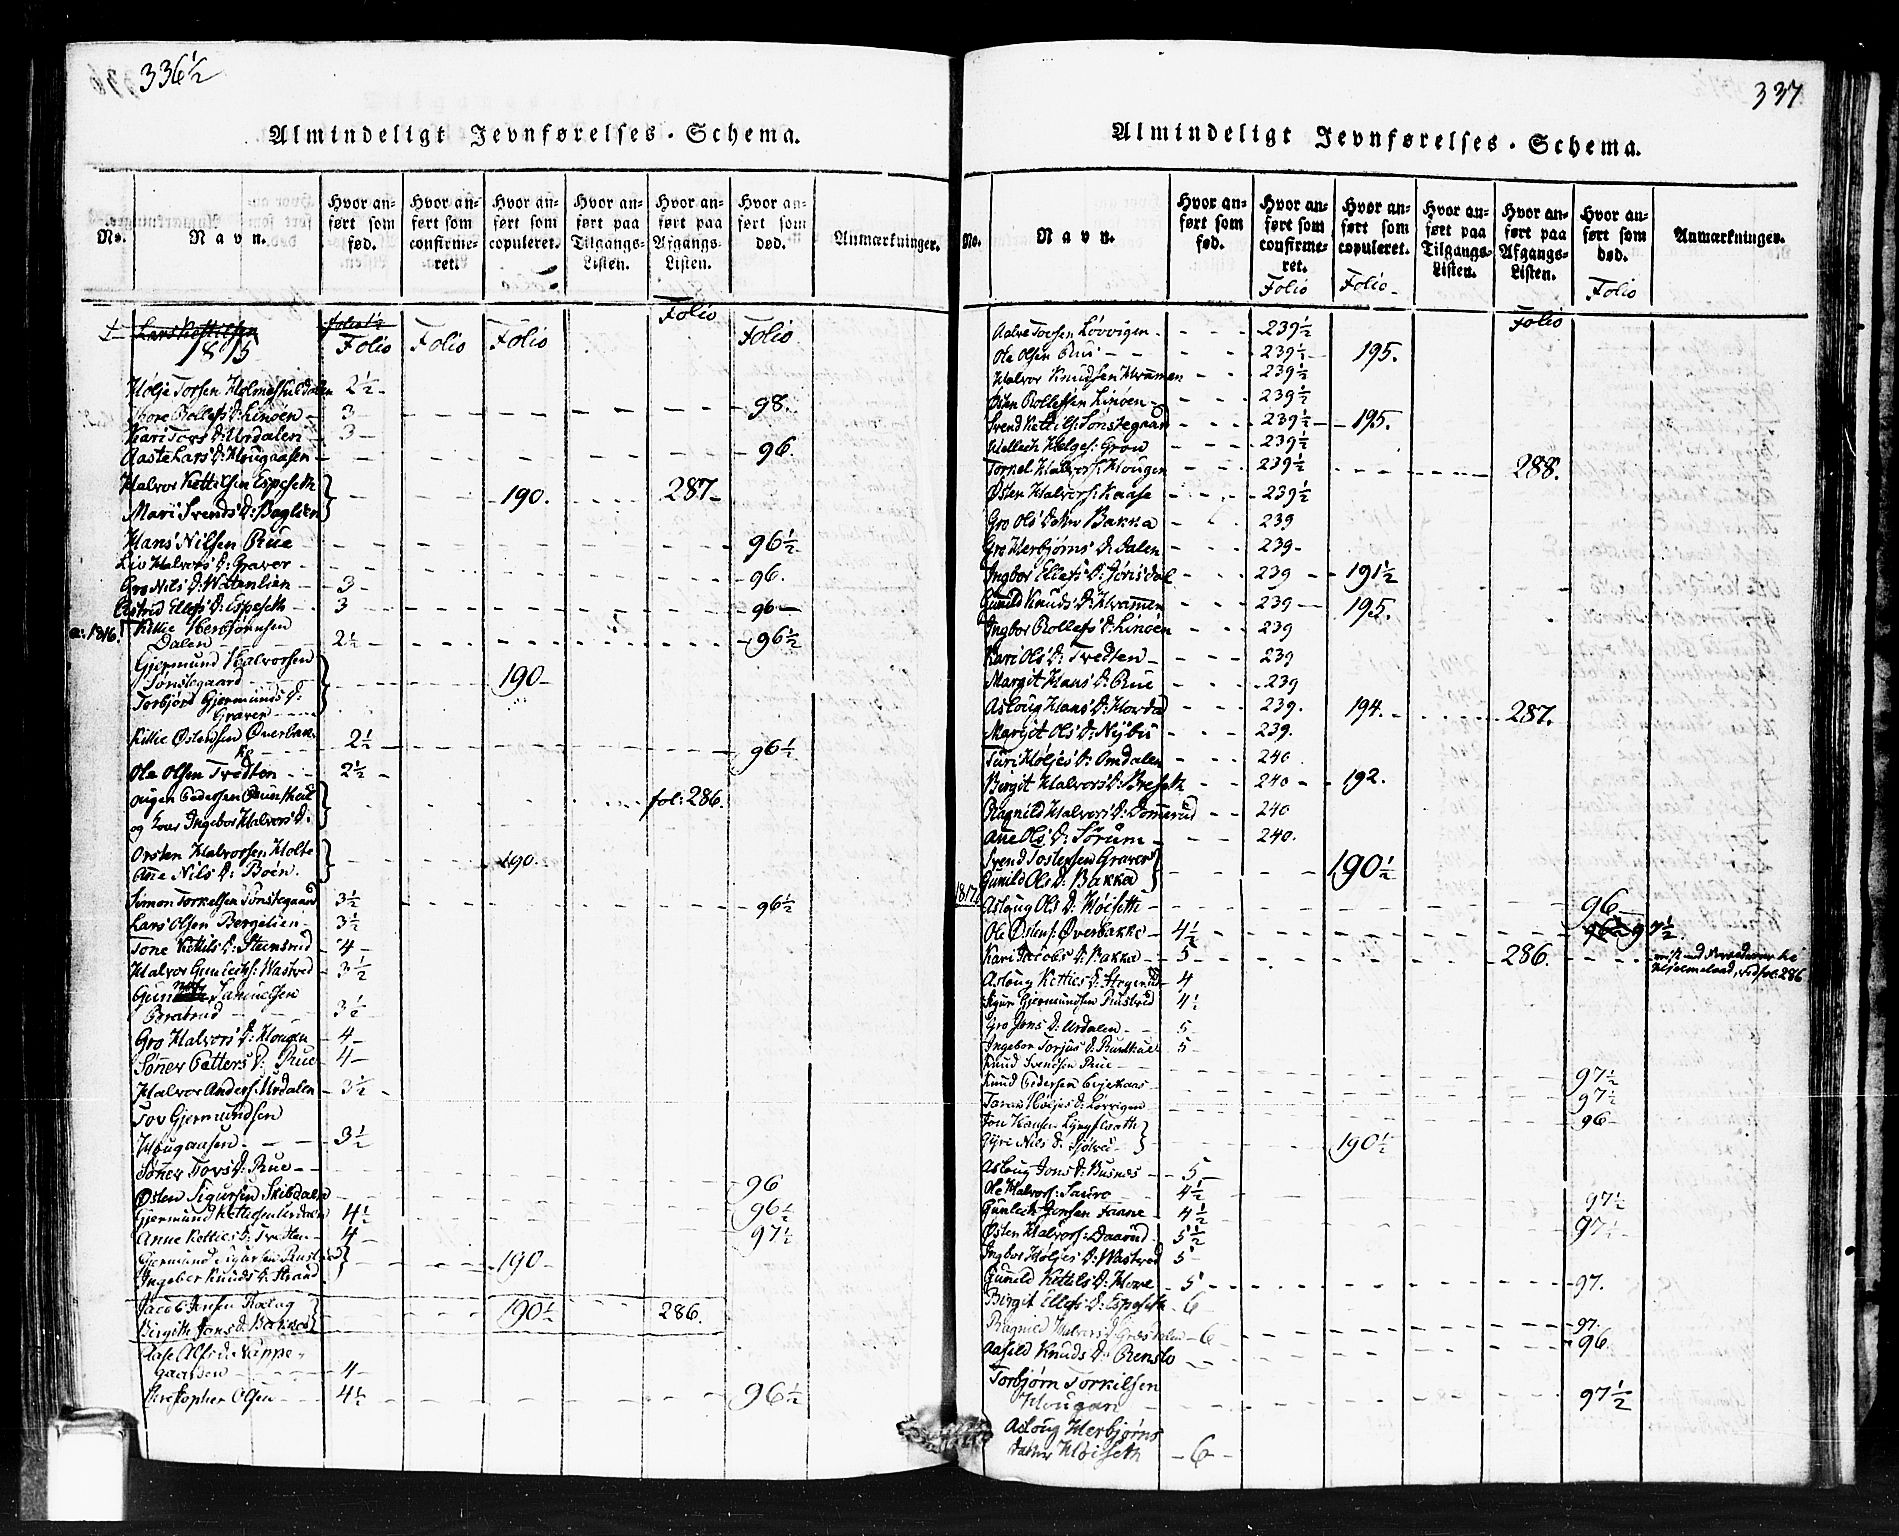 336½
Almindeligt Jevnførelses-Schema.
No. Navn. Hvor anført som fød. Hvor anført som confirmeret. Hvor anført som copuleret. Hvor anført paa Tilgangs-Listen. Hvor anført paa Afgangs-Listen. Hvor anført som død. Anmærkninger.
Folio
1815 Folio Folio Folio Folio
Høljе Torsen Holmeskuldalen 2½
Thore Rollefs D: Linøen 3 98.
Kari Tors D: Urdalen 3
Aaste Lars D: Hougaasen 96.
Halvor Kettilsen Espeseth 190. 287
Mari Svends D: Baglien
Hans Nilsen Rue 96½
Liv Halvors D: Graver 96.
Gro Nils D: Watenlien 3
Astrid Ellefs D: Espeseth 3 96
1816. Kittie Herbjørnsen
Dalen 2½ 96½
Gjermund Halvorsen
Tønstegaard 190
Torbjørd Gjermunds D:
Graver
Kittie Østensen Øverbak
ke 2½ 96½
Ole Olsen Tvedten 2½
fol: 286.
og Kone Ingebor Halvors D:
Orsten Halvorsen Holte 190.
Ane Nils D: Boen.
Simon Torkelsen Tønstegaard 3½ 96½
Lars Olsen Bergelien 3½
Tone Kettils D: Steensrud 4
Halvor Gunleiks: Wastved 3½
Samuelsen
Bratrud 3½
Gro Halvors D: Hougen 4
Søner Petters D: Rue 4
Halvor Anders: Urdalen 3½
Tov Gjermundsen
Hougaasen 3½
Søner Tovs D: Rue 96
Østen Sigursen Skibdalen 96½
Gjermund Kettilsen Urdalen 4½ 97½
Anne Ketties D: Tvedten 4
Gjermund Sigursen Rusted 190
Ingeber Knuds D: Strand
Jacob Jensen 190½ 286.
Birgith Jons D:
Aase Alfs D: Nappe-
gaassen 4
Christopher Olsen 4½ 96½
337
Almindeligt Jevnførelses-Schema.
No. Navn. Hvor anført som fød. Hvor anført som confirmeret. Hvor anført som copuleret. Hvor anført paa Tilgangs-Listen. Hvor anført paa Afgangs-Listen. Hvor anført som død. Anmærkninger.
Folio Folio Folio Folio
Aalve Torsen Løvvigen 239½
Ole Olsen Rue 239½ 195.
Halvor Knudsen Hvammen 239½
Østen Rollefsen Linøen 239½
Svend Kettils: Tønstegaard 239½ 195.
Helleck Helges: Grov 239½
Tornel Halvors: Hougen 239½ 288.
Østen Halvors: Kaase 239½
Gro Ols Dater Bakka 239
Gro Herbjørns D: Dalen 239
Ingbor Ellefs D: Jørisdal 239 191½
Gunild Knuds D: Hvammen 239 195.
Ingbor Rollefs D: Linøen 239
Kari Ols D: Tvedten 239
Margit Hans D: Rue 239
Asloug Hans D: Hovdal 239. 194. 287.
Margit Ols D: Nybu 239.
Turi Høljes D: Omdalen 240
Birgit Halvors D: Breseth 240 192.
Ragnild Halvors D: Dommerud 240
Ane Ols D: Sørum 240.
Svend Tostensen Graver 190½
Gunild Ols D: Bakka
1817. Asloug Ols D: Høiseth 96
Ole Østens: Øverbakke 4½ 97½
Kari Jacobs D: Bakka 5 286.
Asloug Ketties D: 4
Sigur Gjermundsen Rustved 4½
Gro Jons D: Urdalen 5
Ingebor Torjus D: 5
Knud Svendsen Rue 97½
Knud Pedersen 97½
Taran Høljes D: Løvvigen 96
Jon Hansen 190½
Gyri Nils D:
Asloug Jons D: Busnes 5
Ole Halvors: Sauro 4½ 97½
Gunleck Jensen 4½ 97½
Østen Halvors: Daarud 5½
Ingbor Høljes D: Wastved 5
Gunild Kettels D: Hove 5 97.
Birgit Ellefs D: Espeseth 6
Ragnild Halvors D: 6 97.
Aaseld Knuds D: 96
Torbjørn Torkilsen
Hougan 97½
Asloug Herbjørns
Datter Høiseth 6